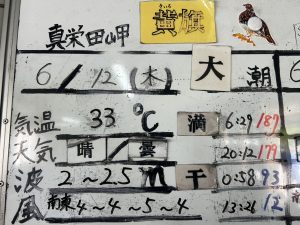 真栄田岬 きいろ 黄旗
6/12(木) 大潮
気温 33℃ 満 6:29 187
天気 晴/曇 20:12 179
波 2~2.5m 干 0:58 93
風 南東 4~4~5~4 13:21 12